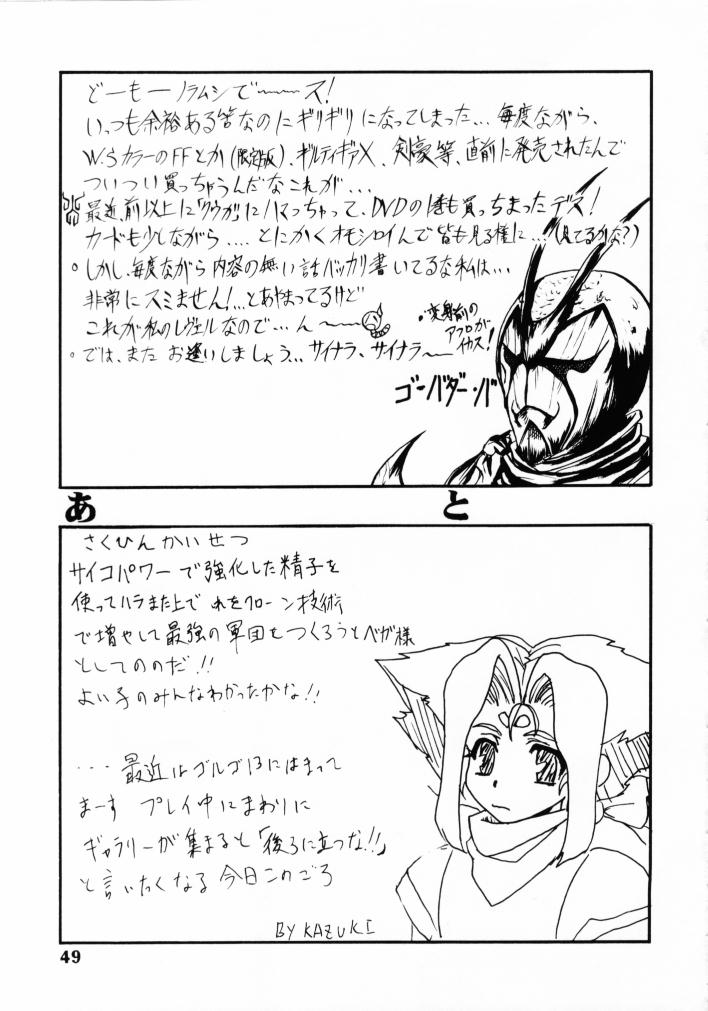 どーもーノラムシで〜〜ス!
いっつも余裕ある筈なのにギリギリになってしまった… 毎度ながら、
W.SカラーのFFとか(限定版)、ギルティギアX、剣豪等、直前に発売されたんで
ついつい買っちゃうんだなこれが...
最近、前以上に「クウガ」にハマっちゃって、DVDの1巻も買っちまったデス!
カードも少しながら .... とにかくオモシロイんで皆も見る様に…(見てるかな?)
。しかし、毎度ながら内容の無い話バッカリ書いてるな私は…
非常にスミません!…とあやまってるけど
これが私のレヴェルなので…ん〜〜
・変身前の
アフロが
イカス!
。では、また お逢いしましょう… サイナラ、サイナラ〜
ゴ・バダー・バ
あ と
さくひんかいせつ
サイコパワーで強化した精子を
使ってハラませた上で それをクローン技術
で増やして最強の軍団をつくろうとベガ様
としてのだ!!
よい子のみんなわかったかな!!
...最近はゴルゴ13にはまって
まーす プレイ中にまわりに
ギャラリーが集まると「後ろに立つな!!」
と言いたくなる今日このごろ
BY KAZUKI
49